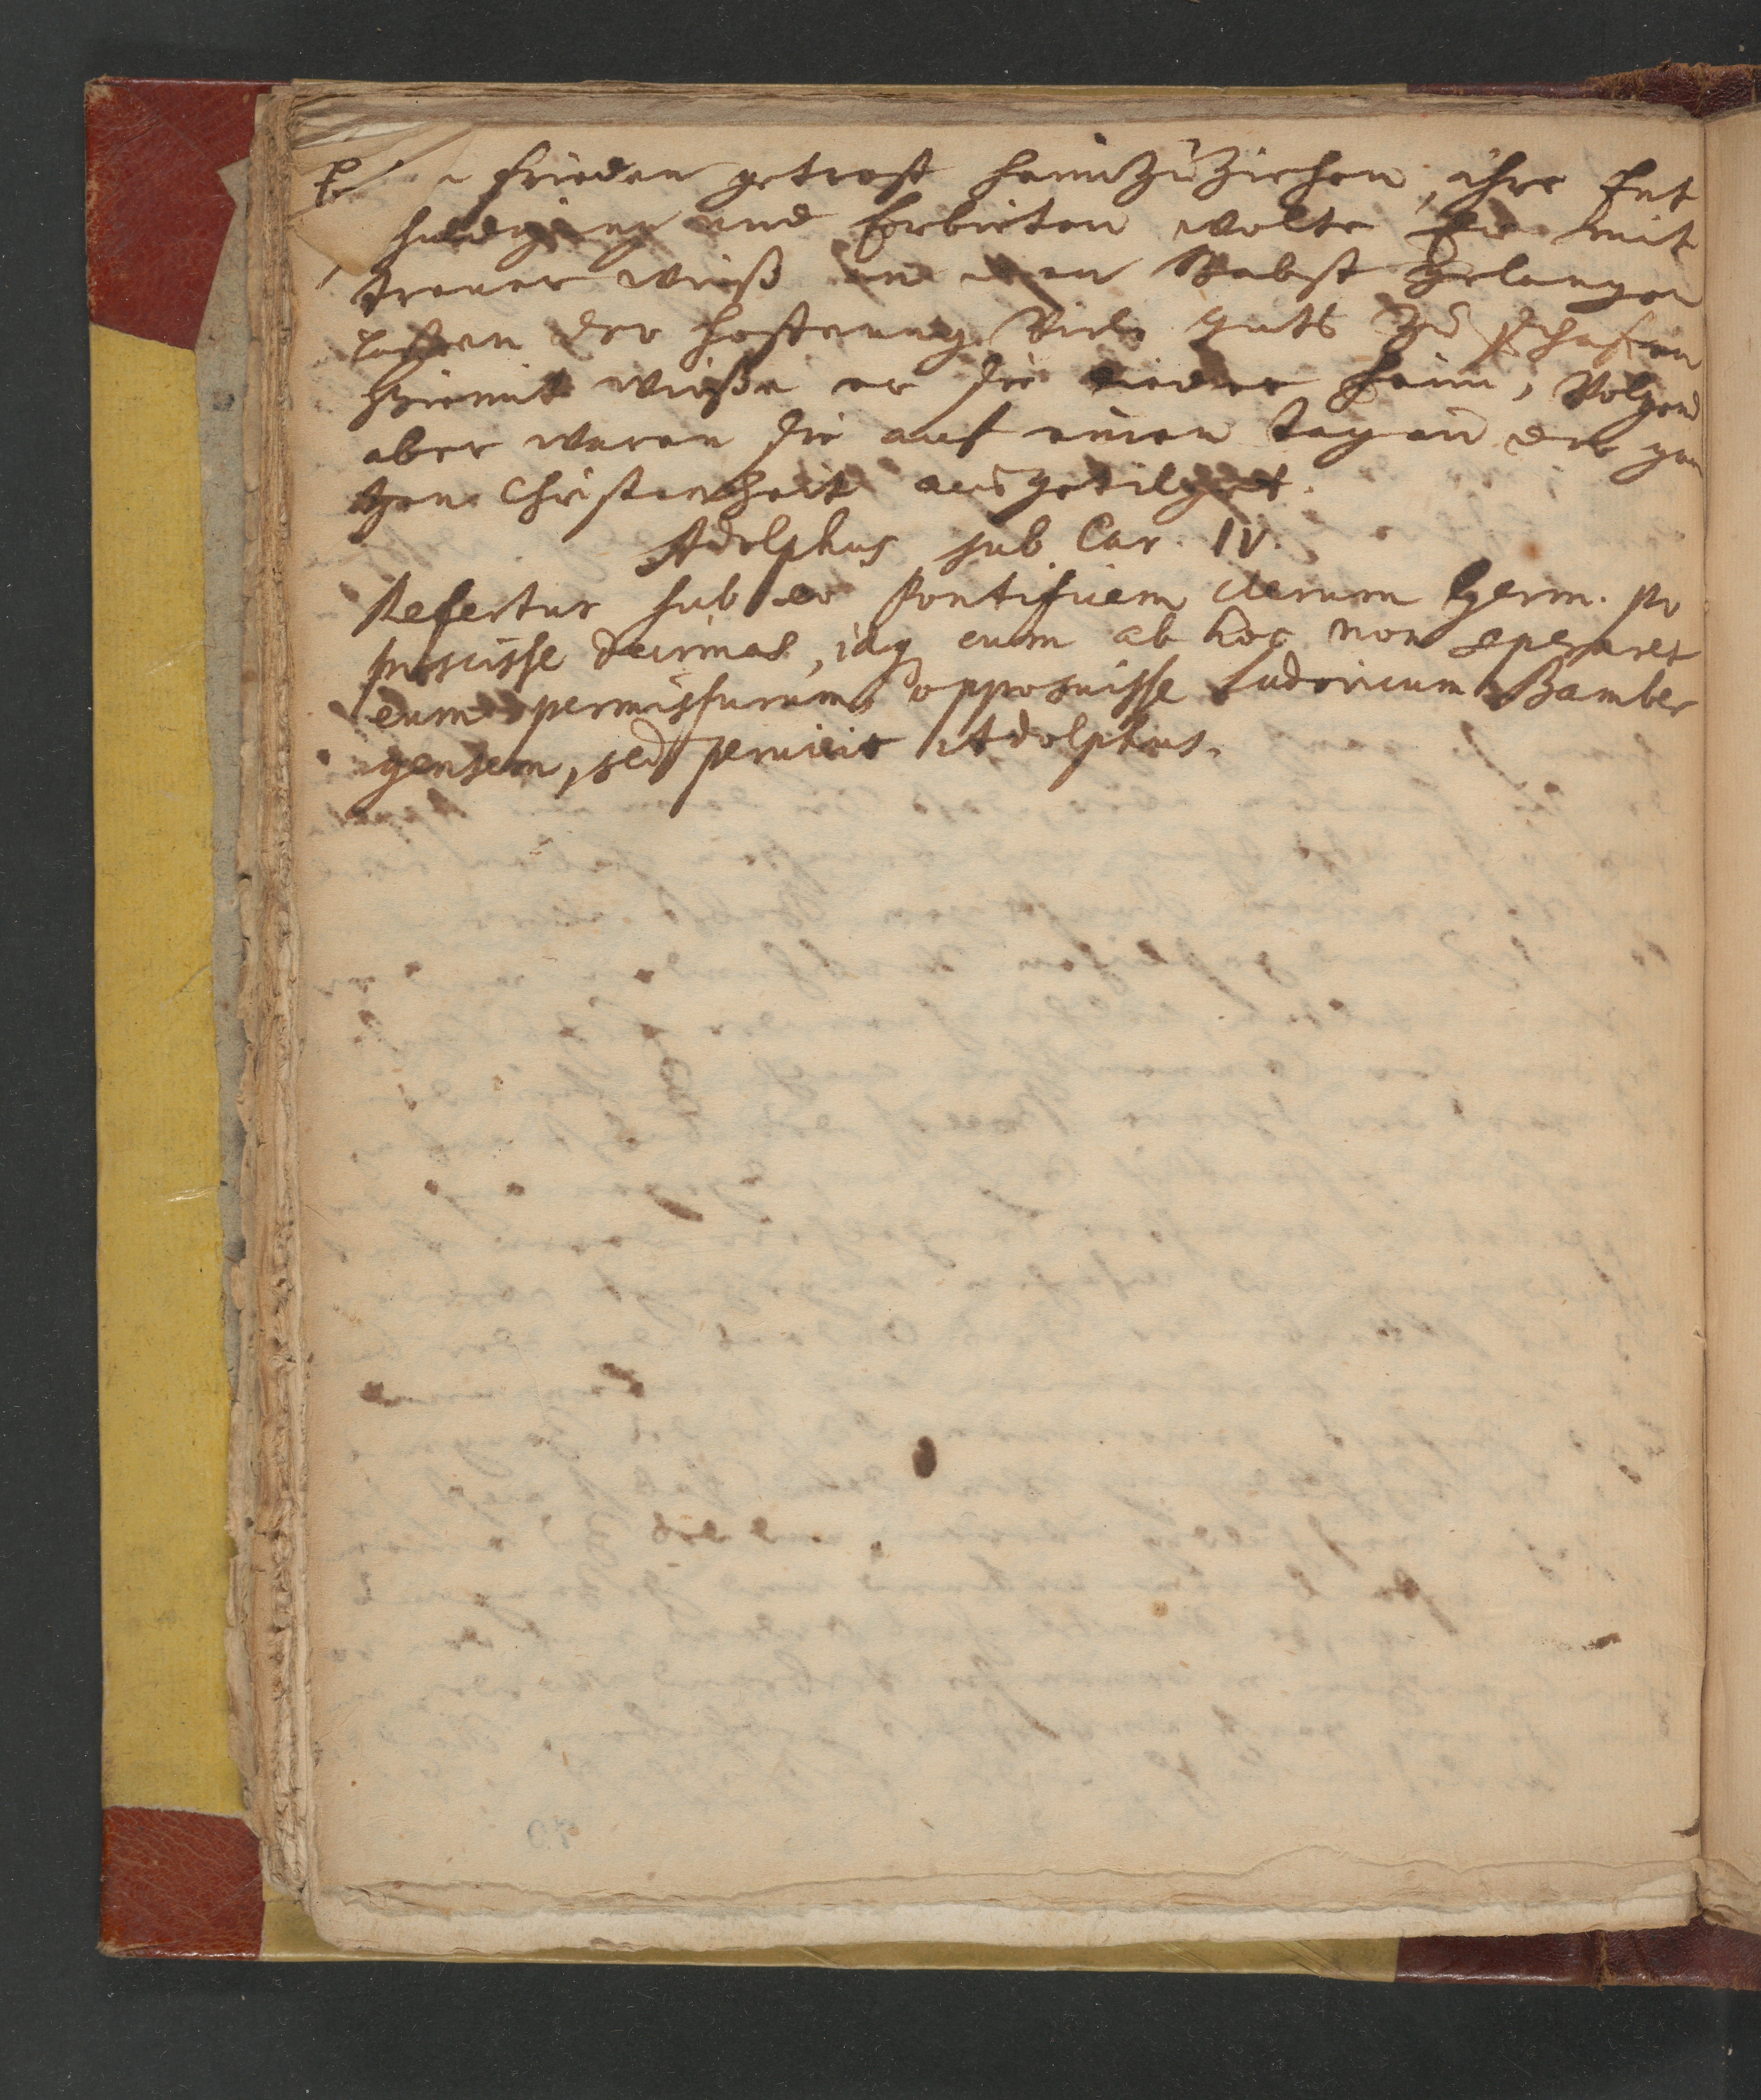 frieden getrost heim Zu Ziehen, ihre Ent
huldigung und Erbieten wolte Er mit
trewer weiß an den Babst gelangen
lassen der hoffnung Viel guts Zu schafen
Hiermit wieße er sie wieder heim, Volgend
aber waren sie auf einen tag in der gan
tzen Christenheit ausgetilget.
Adolphus sub Car. IV.
Refertur sub eo Pontificem clerum Germ. po
poscisse decimas, idq cum ab hoc non speraret
eum permissurum, opposuisse Ludovicum Bamber
gensem, sed pervicit Adolphus.